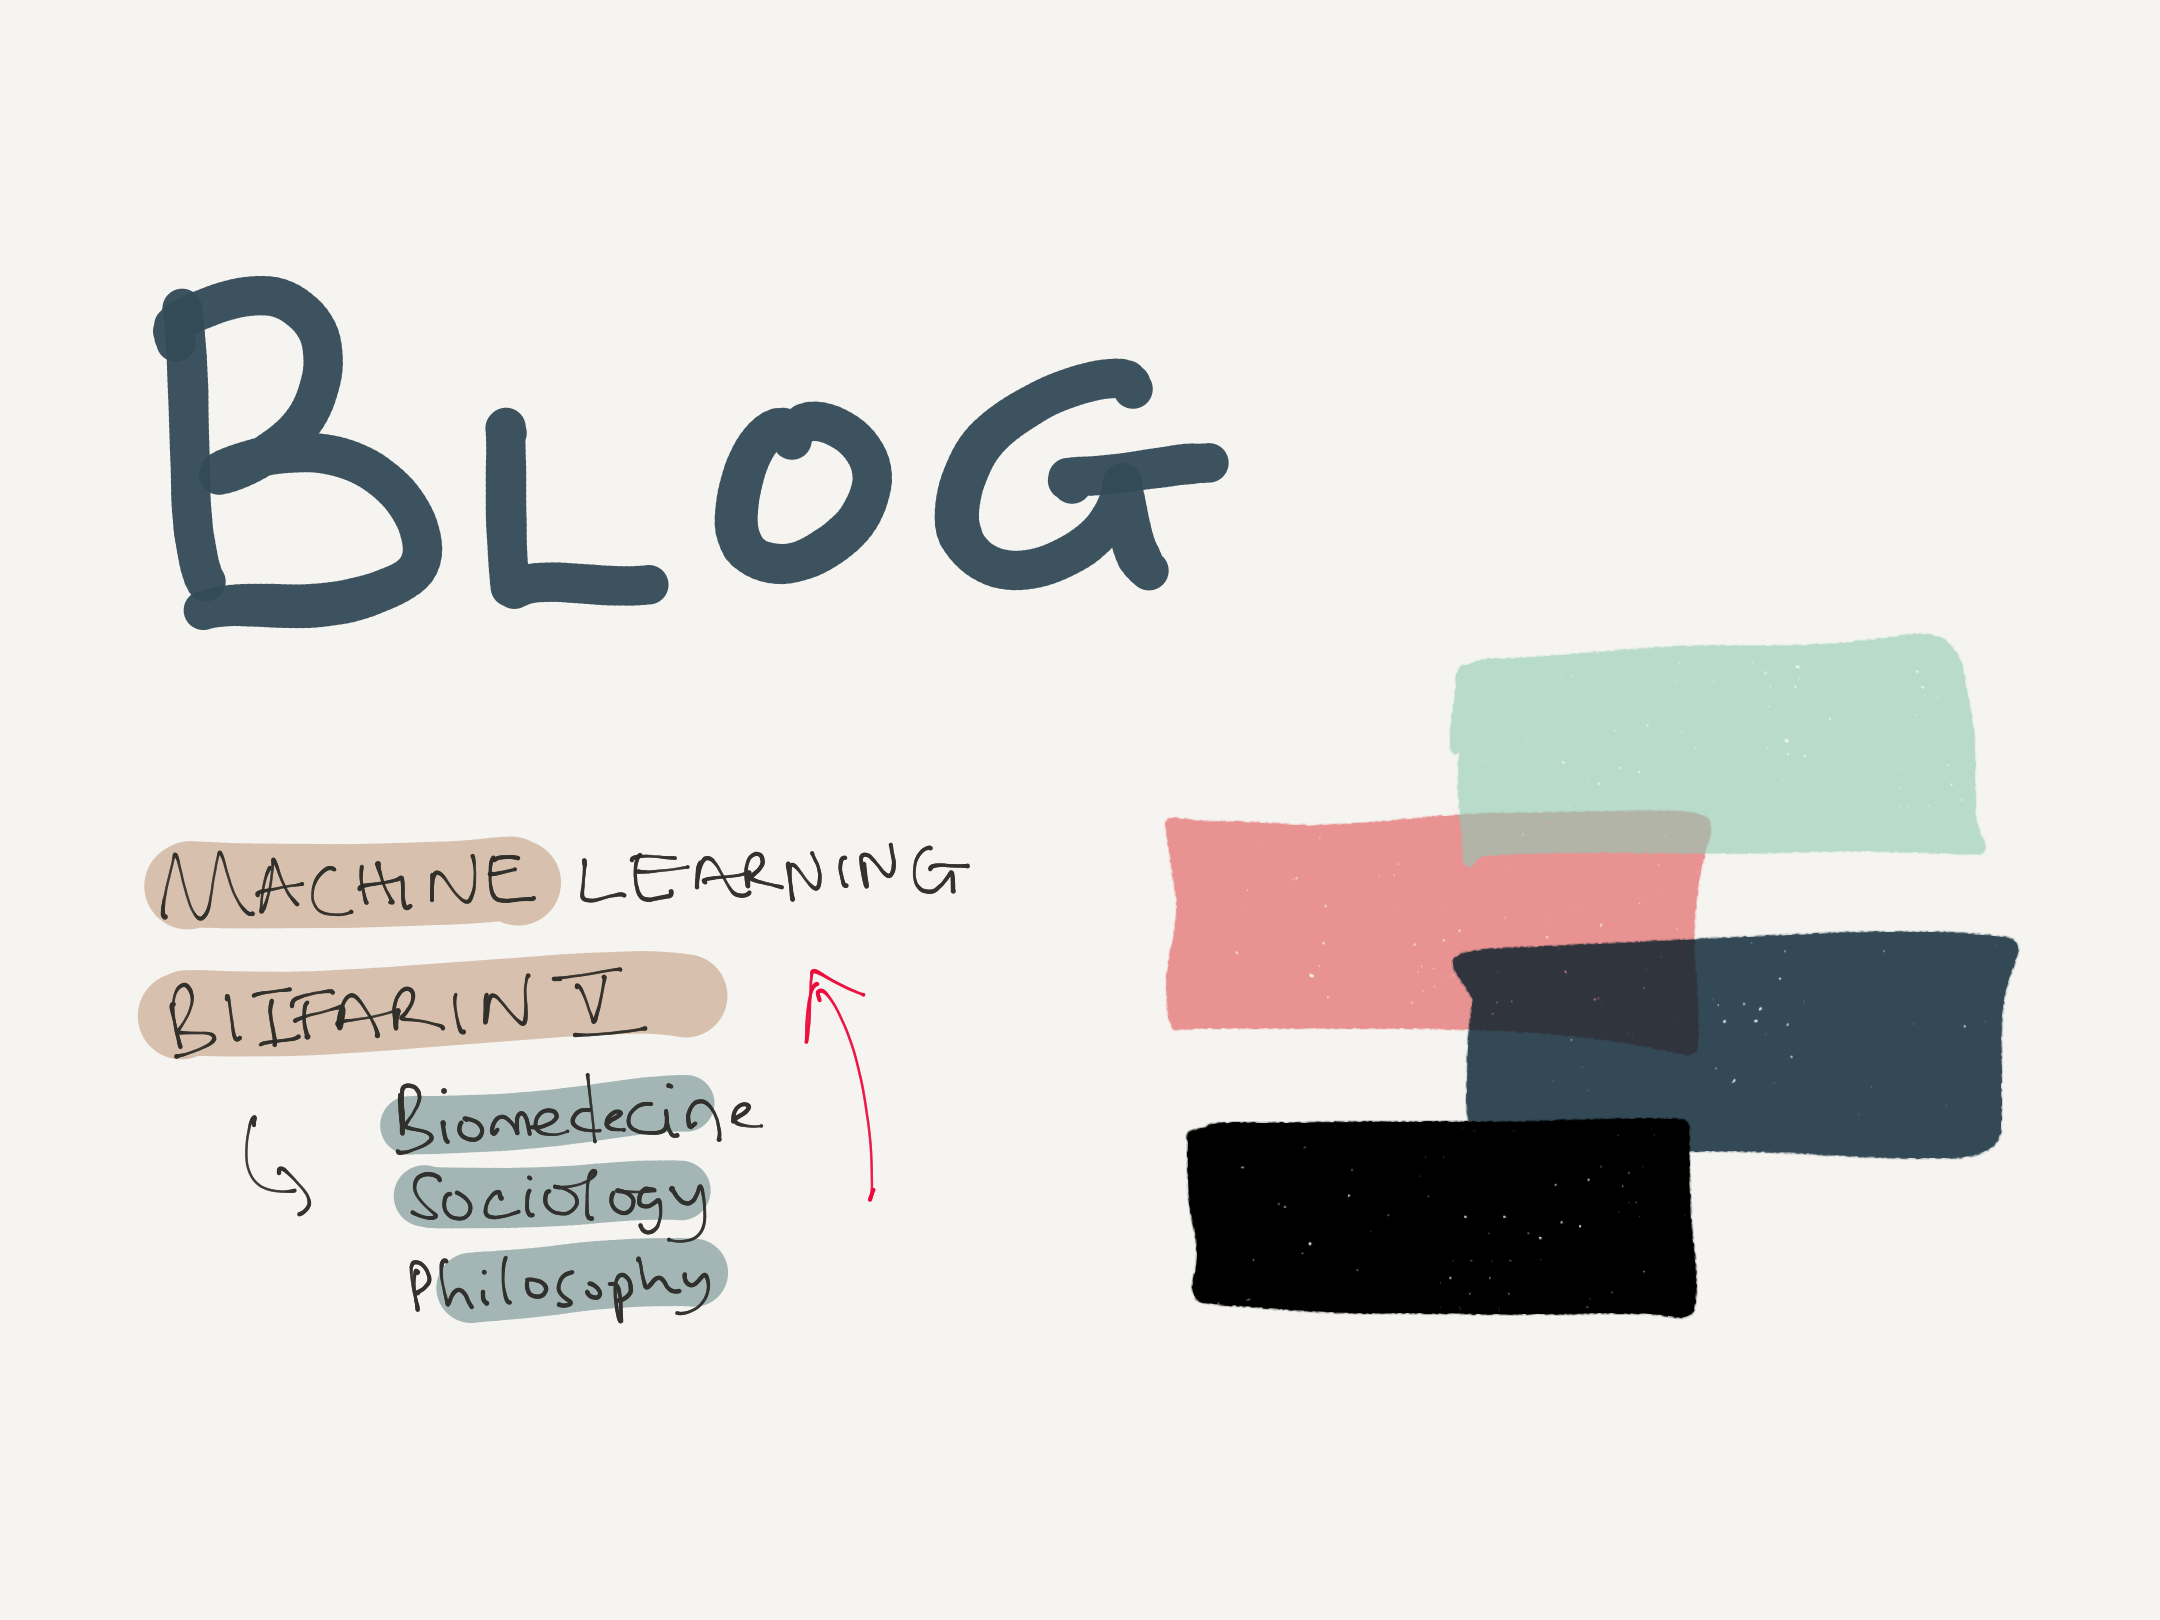 BLOG
MACHINE LEARNING
BIIFARIN V
Biomedecine
Sociology
Philosophy